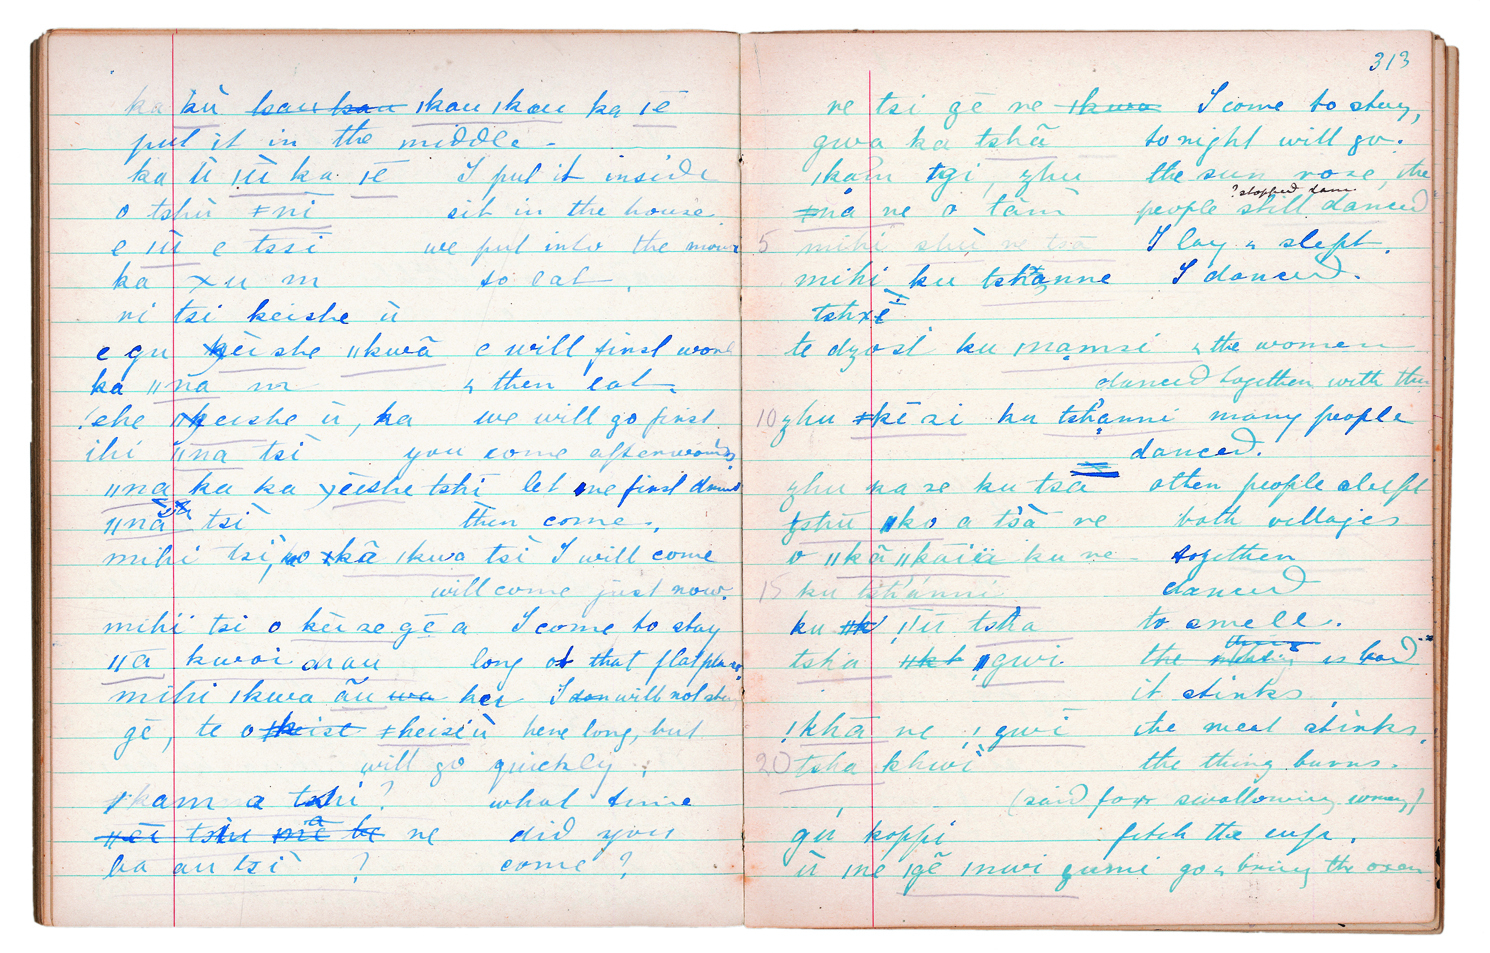 ka kù tsau tsau ǀkau ǀkau ka ǀē
put it in the middle.
ka ù ǀù ka ǀē I put it inside
o tshù ǂni sit in the house.
e ǀù e tssi we put into the mouth
ka xu m to eat.
ni tsi keishe ù
e gu kèishe ǁkwā e will first work
ka ǁna m & then eat.
!she ǁkeishe ù, ka we will go first
ihi ǁna tsi you come afterwards.
ǁna ka ka yèishe tshi let me first drink
ǁnà tsì then come.
mihi tsi, ka ǀkwa tsì I will come
will come just now.
mihi tsi o kèi ze gē a I come to stay
ǁa kwoi arau long at that flat place,
mihi ǀkwa āu wa her I don will not stay
gē, te o ǂkeise ǂheisi ù here long, but
will go quickly.
kam a tshi? what time
ǁēi tshu ma be ne did you
ba au tsi ? come?
313
ne tsi gē ne ǀkwa I come to stay,
gwa ka tshā to night will go.
ǀkam tzi, zhu the sun rose, the
? stopped danc.
ǂna ne o tām people still danced
5 mihi shù ne tsa I lay & slept.
mihi ku tshanne I danced.
tshxē
te dzosi ku ǀnamsi & the women
danced together with the
10 zhu ǂkēzi ku tshanni many people
danced.
zhu ka ze ku tsa other people slept
tshù ǁko a tsà ne both villages
o ǁkā ǁkaiä ku ne together
15 ku tshànni danced
ku ǁk ǀǀù tsha to smell.
thing
tsha ǁkt gwi. the is bad
it stinks
!khā ne ǀgwi the meat stinks.
20 tsha khwi the thing burns.
(said for swallowing wrong)
gù koppi fetch the cup.
ù ǀne ǀgē ǀnwi gumi go & bring the oxen